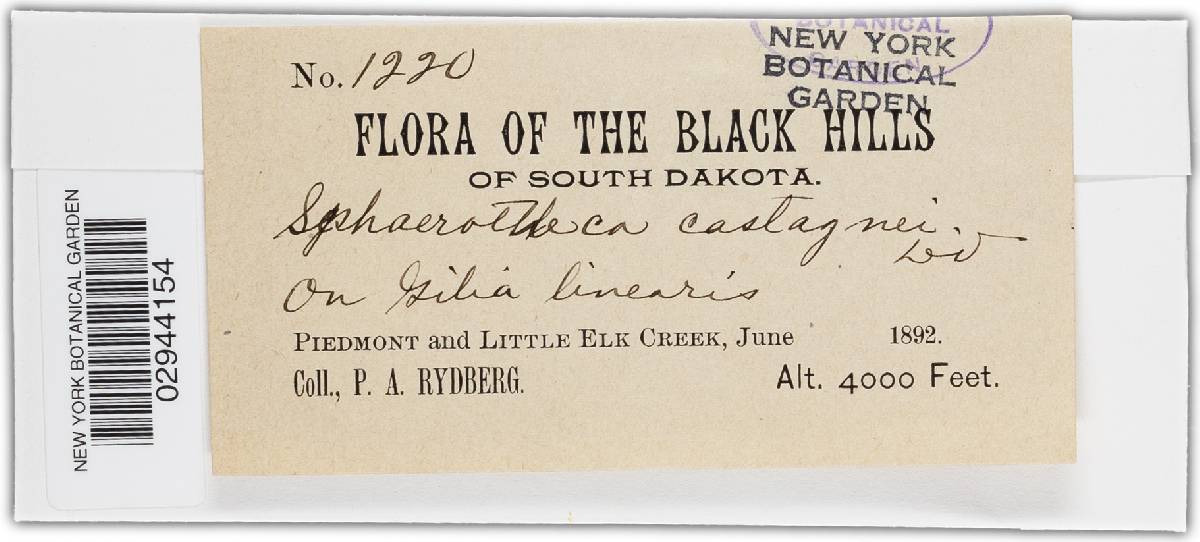 BOTANICAL
GARDEN
NEW YORK
BOTANICAL
GARDEN
No. 1220
FLORA OF THE BLACK HILLS
OF SOUTH DAKOTA.
Sphaerotheca castagnei.
Lev
On Gilia linearis
PIEDMONT and LITTLE ELK CREEK, June 1892.
Coll., P. A. RYDBERG. Alt. 4000 Feet.
NEW YORK BOTANICAL GARDEN
02944154